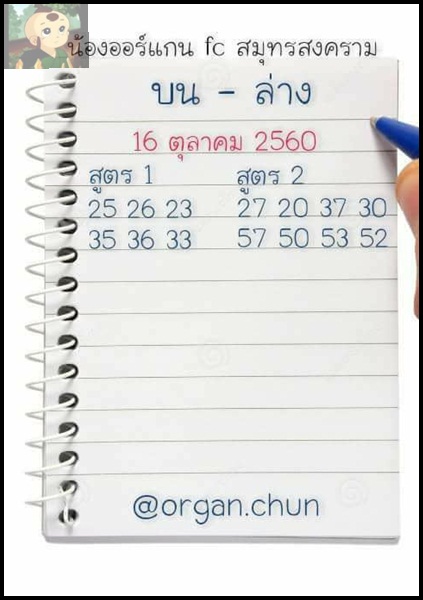 น้องออร์แกน fc สมุทรสงคราม
บน - ล่าง
16 ตุลาคม 2560
สูตร 1 สูตร 2
25 26 23 27 20 37 30
35 36 33 57 50 53 52
@organ.chun